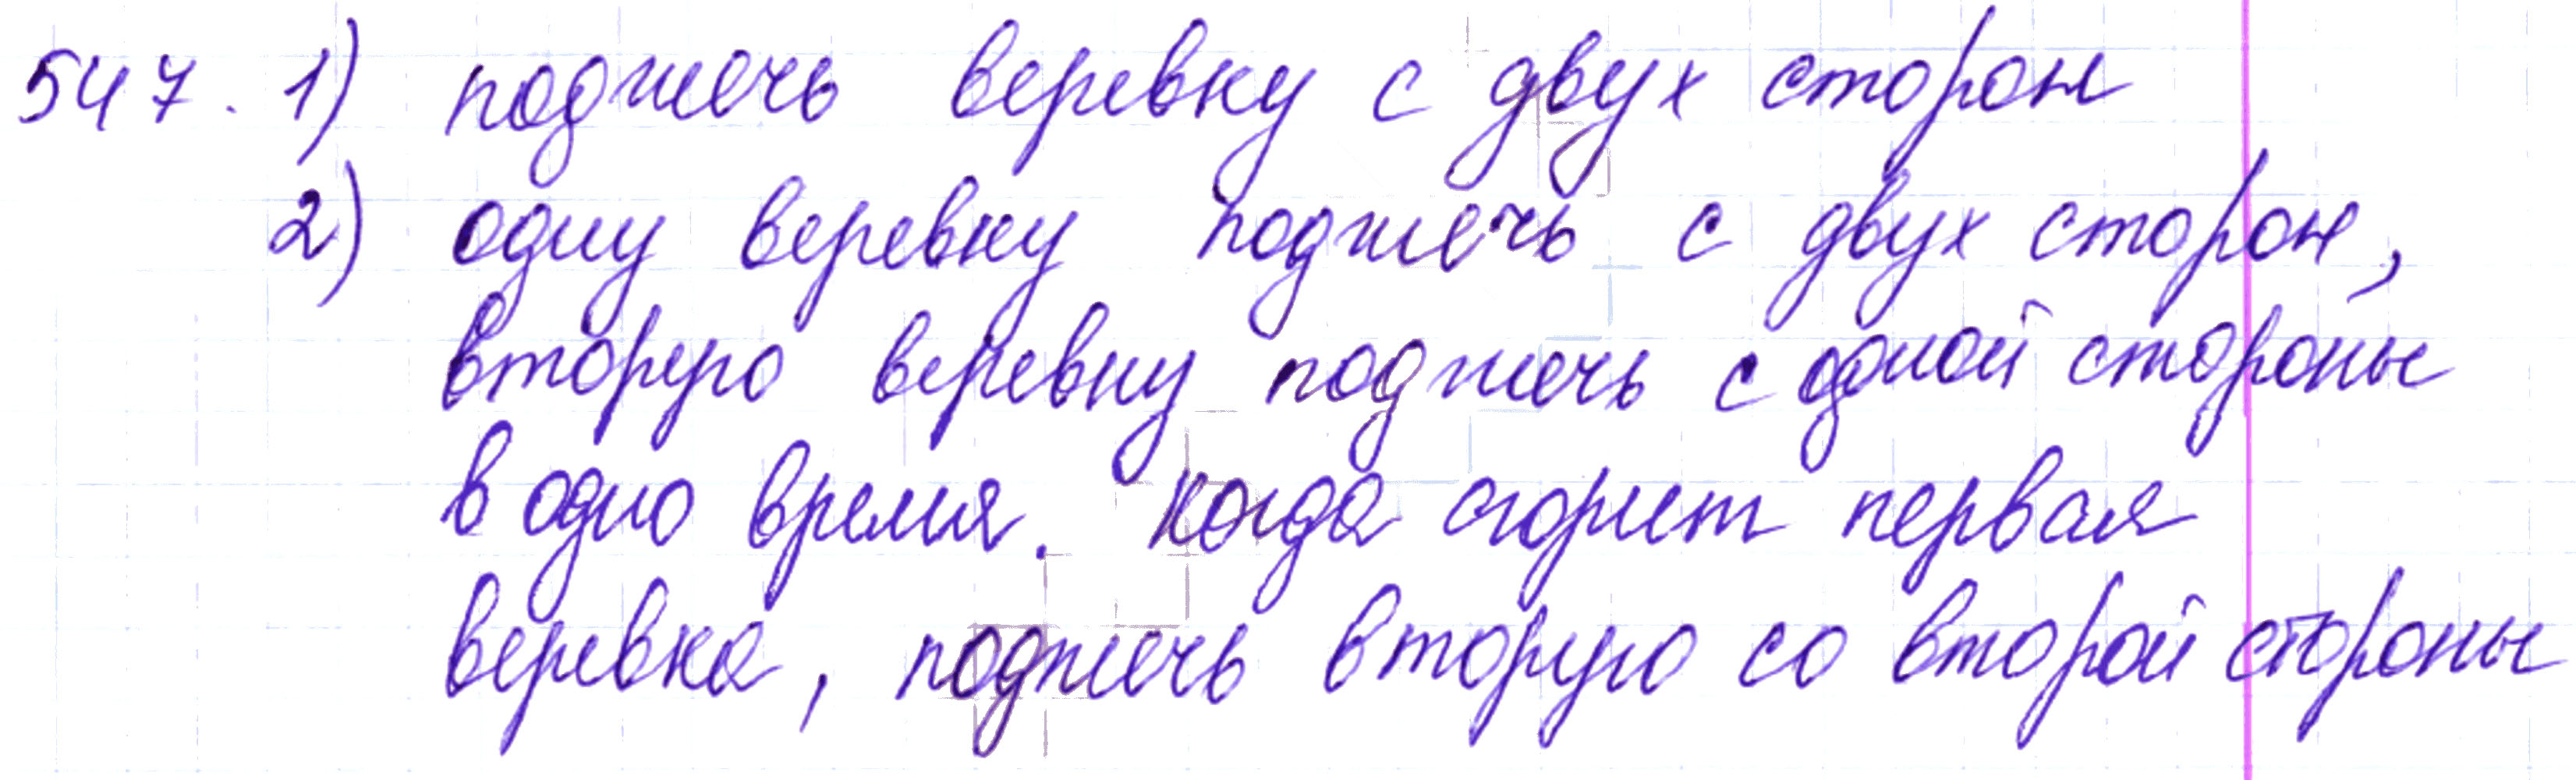 547. 1) поджечь веревку с двух сторон
2) одну веревку поджечь с двух сторон,
вторую веревку поджечь с одной стороны
в одно время. Когда сгорит первая
веревка, поджечь вторую со второй стороны